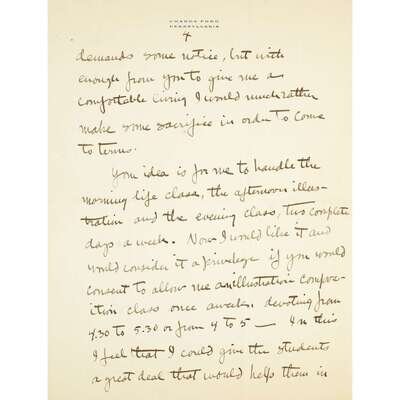 CHADDS FORD
PENNSYLVANIA
4
demands some notice, but with
enough from you to give me a
comfortable living I would much rather
make some sacrifice in order to come
to terms.
Your idea is for me to handle the
morning life class, the afternoon illus-
tration and the evening class, two complete
days a week. Now I would like it and
would consider it a privilege if you would
consent to allow me an illustration compos-
ition class once a week, devoting from
4.30 to 5.30 or from 4 to 5 — In this
I feel that I could give the students
a great deal that would help them in